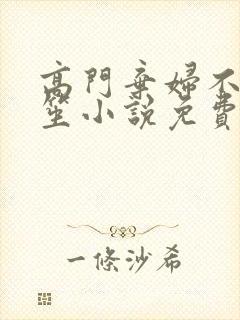 高門棄婦不
笙小說免費
一條沙希